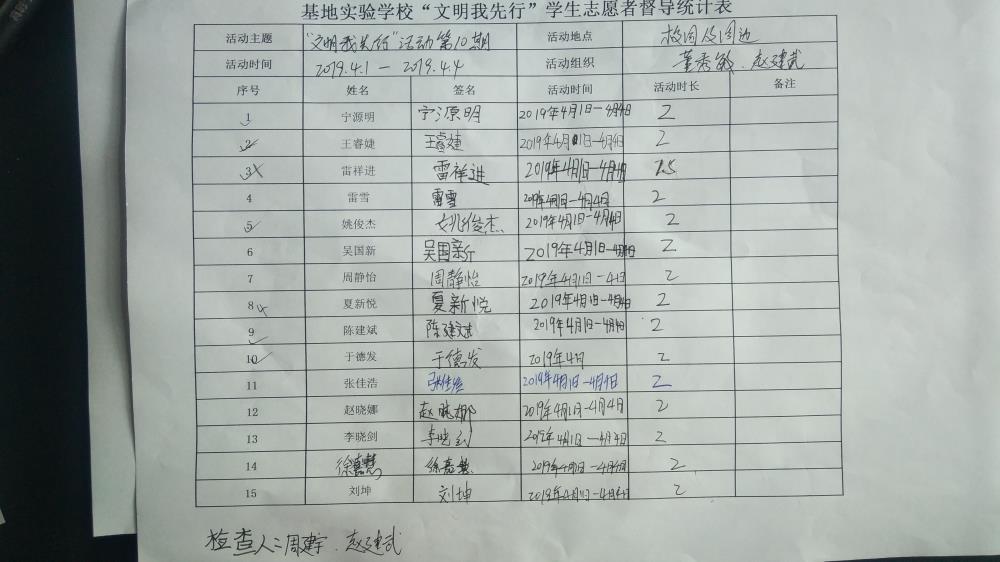 基地实验学校“文明我先行”学生志愿者督导统计表
活动主题 “文明我先行”活动第10期 活动地点 校园及周边
活动时间 2019.4.1 — 2019.4.4 活动组织 董秀敏、赵建武
序号 姓名 签名 活动时间 活动时长 备注
1 宁源明 宁源明 2019年4月1日—4月4日 2
2 王睿婕 王睿婕 2019年4月1日—4月4日 2
3 雷祥进 雷祥进 2019年4月1日—4月4日 1.5
4 雷雪 雷雪 2019年4月1日—4月4日 2
5 姚俊杰 姚俊杰 2019年4月1日—4月4日 2
6 吴国新 吴国新 2019年4月1日—4月4日 2
7 周静怡 周静怡 2019年4月1日—4日 2
8 夏新悦 夏新悦 2019年4月1日—4月4日 2
9 陈建斌 陈建斌 2019年4月1日—4月4日 2
10 于德发 于德发 2019年4月 2
11 张佳浩 张佳浩 2019年4月1日—4月4日 2
12 赵晓娜 赵晓娜 2019年4月1日—4月4日 2
13 李晓剑 李晓剑 2019年4月1日—4月4日 2
14 徐嘉慧 徐嘉慧 2019年4月1日—4月4日 2
15 刘坤 刘坤 2019年4月1日—4月4日 2
检查人:周建宇、赵建武